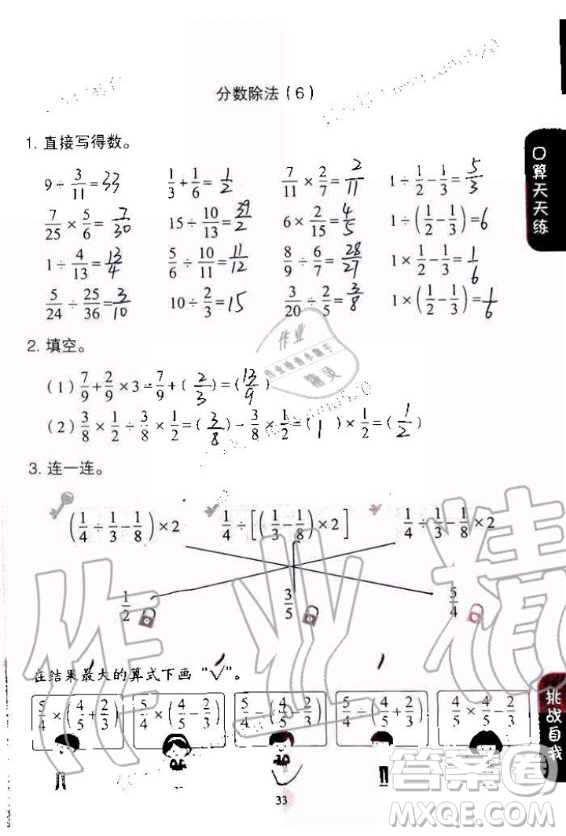 分数除法(6)
1. 直接写得数。
9÷3/11=33 1/3+1/6=1/2 7/11×2/7=2/11 1÷1/2-1/3=5/3
7/25×5/6=7/30 15÷10/13=39/2 6×2/15=4/5 1÷(1/2-1/3)=6
1÷4/13=13/4 5/6÷10/11=11/12 8/9÷6/7=28/27 1×1/2-1/3=1/6
5/24÷25/36=3/10 10÷2/3=15 3/20÷2/5=3/8 1×(1/2-1/3)=1/6
2. 填空。
(1) 7/9+2/9×3=7/9+(2/3)=(13/9)
(2) 3/8×1/2÷3/8×1/2=(3/8)÷(3/8)×1/2=(1)×1/2=(1/2)
3. 连一连。
(1/4÷1/3-1/8)×2 1/4÷[(1/3-1/8)×2] 1/4÷1/3-1/8×2
1/2 3/5 5/4
在结果最大的算式下画“√”。
5/4×(4/5+2/3) 5/4×(4/5-2/3) 5/4-(4/5-2/3) 5/4÷(4/5+2/3) 4/5×5/4-2/3
33
口算天天练
挑战自我
作业
精灵
作业精
答案圈
MXQE.COM